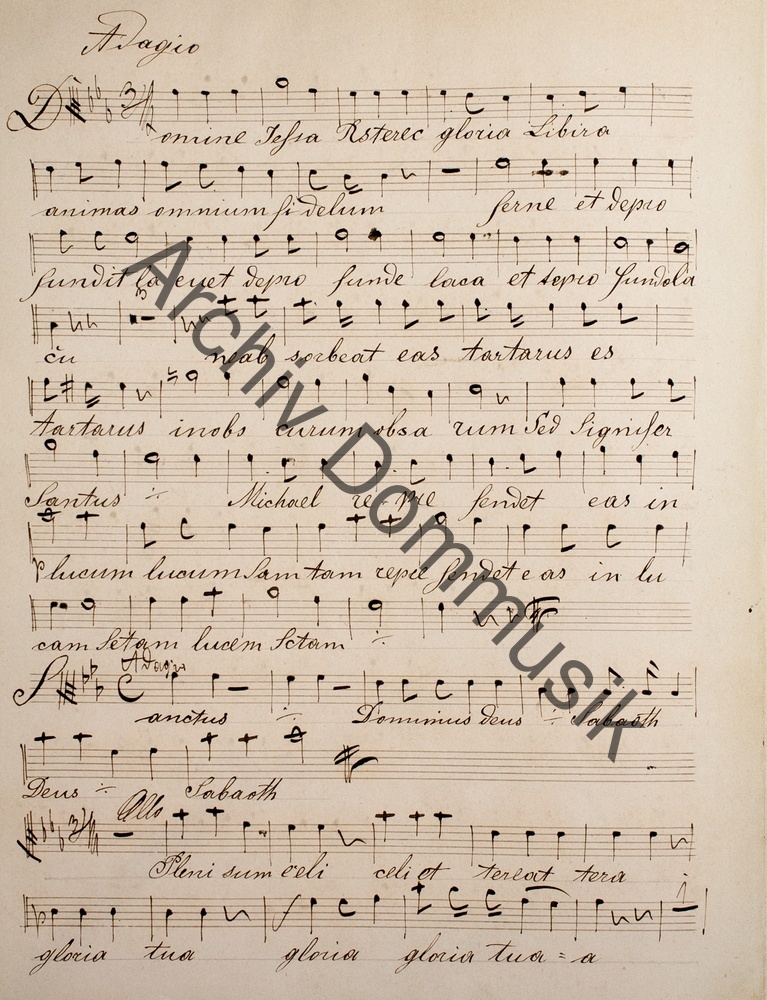 Adagio
Domine Jessa Rsterec gloria Libira
animas omnium fidelum ferne et depro
fundit la cuet depro funde laca et sopro fundola
cu neab sorbeat eas tartarus es
tartarus inobs curum obsa rum Sed Signifer
Santus ÷ Michael repre sendet eas in
lucum lucum Sam tam repre sendet eas in lu
cam Setam lucem Sctam ÷
Adagio
Sanctus ÷ Dominus deus ÷ Sabaoth
Deus ÷ Sabaoth
Allo
Pleni sum celi celi et tereat tera
gloria tua gloria gloria tua = a
Archiv Dommusik